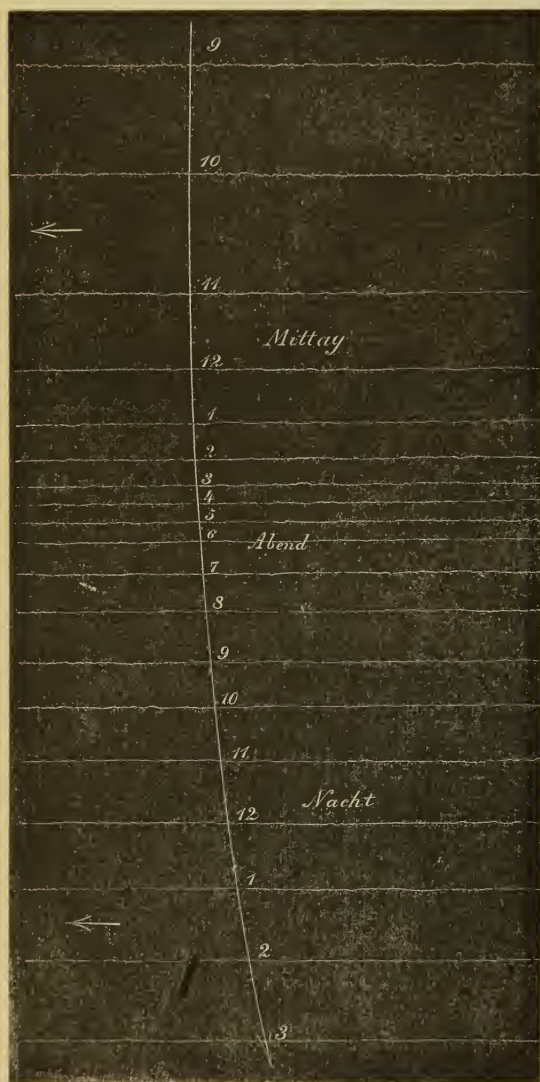 9
10
11
Mittag
12
1
2
3
4
5
6
Abend
7
8
9
10
11
Nacht
12
1
2
3